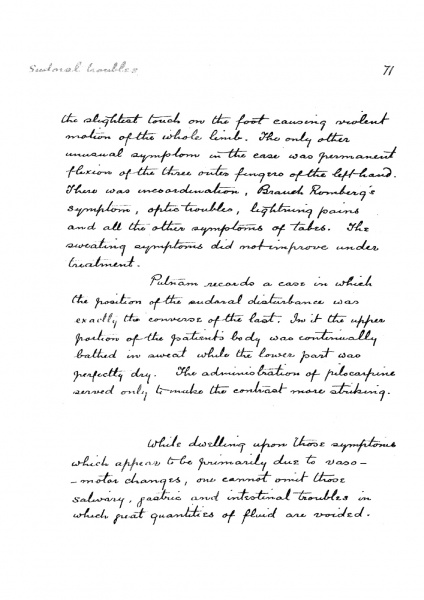 Sudoral troubles
71
the slightest touch on the foot causing violent
motion of the whole limb. The only other
unusual symptom in the case was permanent
flexion of the three outer fingers of the left hand.
There was incoordination, Brauch Romberg's
symptom, optic troubles, lightning pains
and all the other symptoms of tabes. The
sweating symptoms did not improve under
treatment.
Putnam records a case in which
the position of the sudoral disturbance was
exactly the converse of the last. In it the upper
portion of the patient's body was continually
bathed in sweat while the lower part was
perfectly dry. The administration of pilocarpine
served only to make the contrast more striking.
While dwelling upon those symptoms
which appear to be primarily due to vaso-
-motor changes, one cannot omit those
salivary, gastric and intestinal troubles in
which great quantities of fluid are voided.